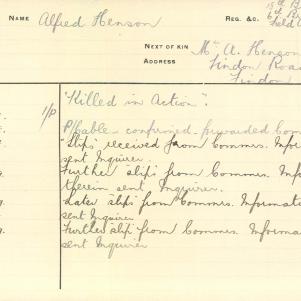 NAME Alfred Henson REG. &C. 15th
6th
Field
NEXT OF KIN Mr. A. Henson
ADDRESS Findon Road
Findon
"Killed in Action".
1/P
P/Cable - confirmed - forwarded Comm
Slips received from Commrs. Infor
sent Inquirer.
Further slips from Commrs. Infor
therein sent Inquirer.
Later slips from Commrs. Informati
sent Inquirer
Further slip from Commrs. Informa
sent Inquirer